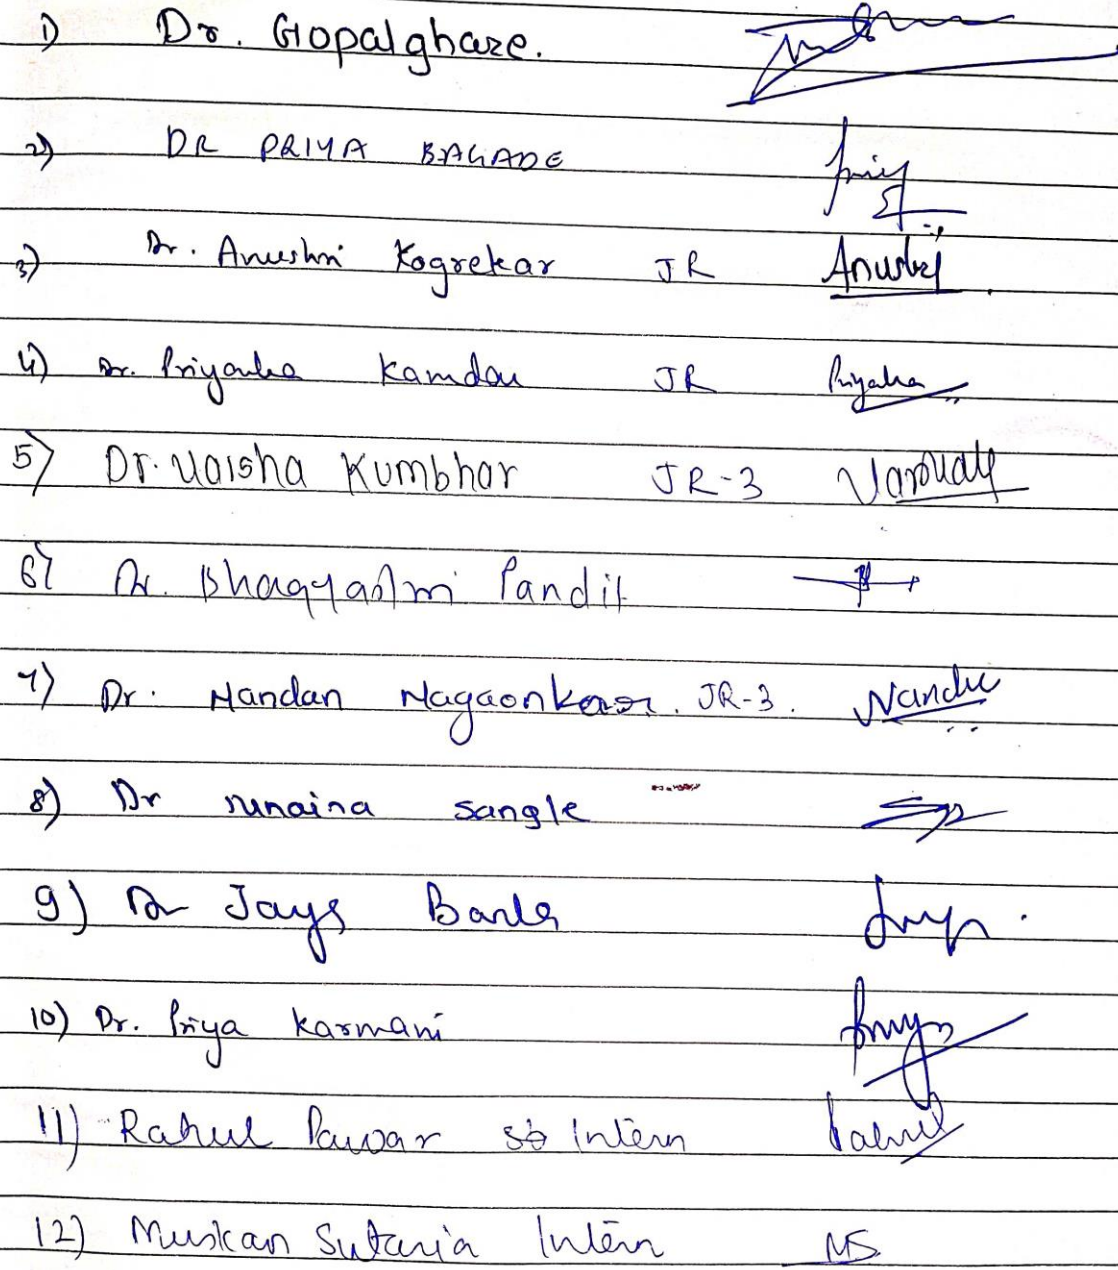 1) Dr. Gopalghare.
2) DR PRIYA BAGADE
3) Dr. Anushri Kogrekar JR Anushri
4) Dr. Priyanka Kamdar JR Priyaka
5) Dr. Varsha Kumbhar JR-3
6) Dr. Bhagyashri Pandit
7) Dr. Nandan Nagaonkar. JR-3. Nandu
8) Dr sunaina sangle
9) Dr Jaya
10) Dr. Priya Karmani
11) Rahul Pawar Intern Rahul
12) Muskan Sutaria Intern MS